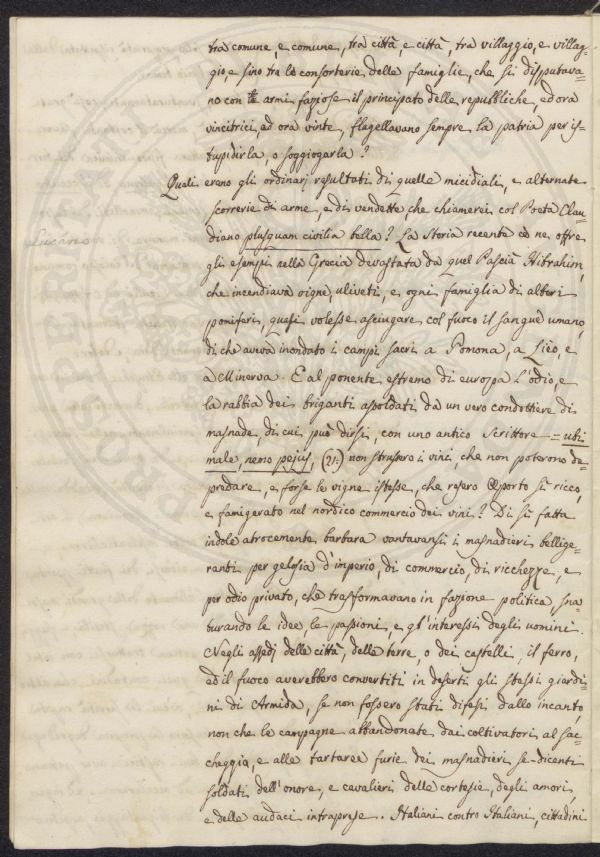 tra comune, e comune, trà città, e città, tra villaggio, e villag=
gio, e sino tra le consorterie delle famiglie, che si disputava=
no con armi faziose il principato delle repubbliche, ed ora
vincitrici, ed ora vinte, flagellavano sempre la patria per is=
tupidirla, o soggiogarla?
Quali erano gli ordinarj resultati di quelle micidiali, e alternate
scorrerie di arme, e di vendette che chiamerei col Poeta Clau=
Lucano
diano plusquam civilia bella? La storia recente ce ne offre
gli esempi nella Grecia devastata da quel Pascià Hibrahim,
che incendiava vigne, uliveti, e ogni famiglia di alberi
pomiferi, quasi volesse asciugare col fuoco il sangue umano,
di che aveva inondato i campi sacri a Pomona, a Lièo, e
a Minerva. E al ponente estremo di europa l'odio, e
la rabbia dei briganti assoldati da un vero condottiere di
masnade, di cui può dirsi, con uno antico Scrittore = ubi
male, nemo pejus, (21.) non strussero i vini, che non poterono de=
predare, e forse le vigne istesse, che resero Oporto sì ricco,
e famigerato nel nordico commercio dei vini? Di sì fatta
indole atrocemente barbara vantavansi i masnadieri bellige=
ranti per gelosia d'imperio, di commercio, di ricchezze, e
per odio privato, che trasformavano in fazione politica, sna=
turando le idee, le passioni, e gl'interessi degli uomini.
Negli assedj delle città, delle terre, o dei castelli, il ferro,
ed il fuoco averebbero convertiti in deserti gli stessi giardi=
ni di Armida, se non fossero stati difesi dallo incanto,
non che le campagne abbandonate dai coltivatori al sac=
cheggia, e alle tartaree furie dei masnadieri se-dicenti
soldati dell'onore, e cavalieri delle cortesie, degli amori,
e delle audaci intraprese.. Italiani contro Italiani, cittadini